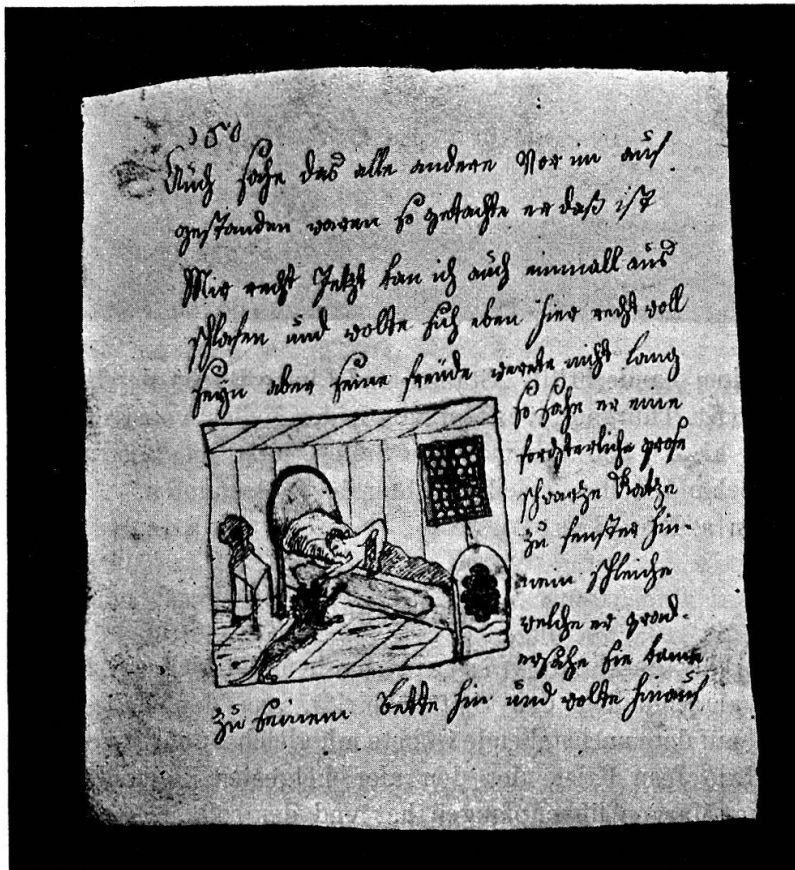 160
Auch sahe das alle andere Vor im auf
gestanden waren so getachte er daß ist
Mir recht Jetzt kan ich auch einmall aus
schlafen und wolte sich eben hier recht woll
seyn aber seine freüde werete nicht lang
so sahe er eine
forchterliche grose
schwartze Katze
zu fenster hin-
nein schleiche
welche er grad-
ersahe sie kame
zu seinem Bette hin und wolte hinauf